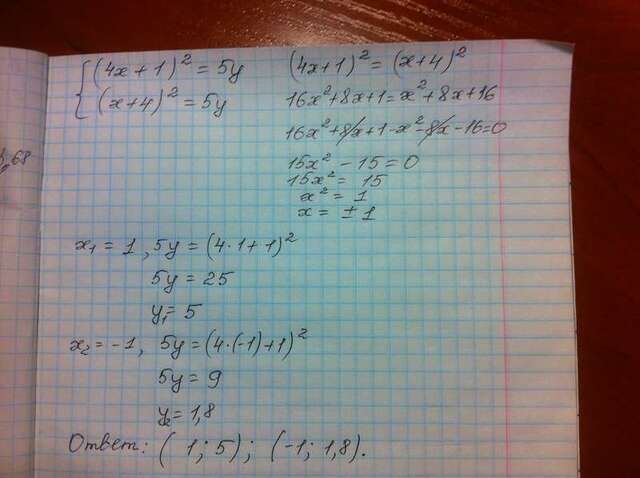 (4x+1)² = 5y
(x+4)² = 5y
(4x+1)² = (x+4)²
16x²+8x+1=x²+8x+16
16x²+8x+1-x²-8x-16=0
15x² - 15 = 0
15x² = 15
x² = 1
x = ±1
x₁ = 1, 5y = (4·1+1)²
5y = 25
y₁= 5
x₂ = -1, 5y = (4·(-1)+1)²
5y = 9
y₂= 1,8
Ответ: (1; 5); (-1; 1,8).